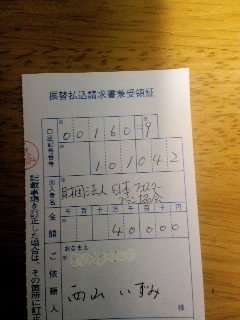 振替払込請求書兼受領証
口座記号番号
00160 9
101042
加入者名
財団法人 日本フォスター
プラン協会
千 百 十 万 千 百 十 円
金額
40000
おなまえ
ご依頼人
西山 いずみ
様
記載事項を訂正した場合は、その箇所に訂正